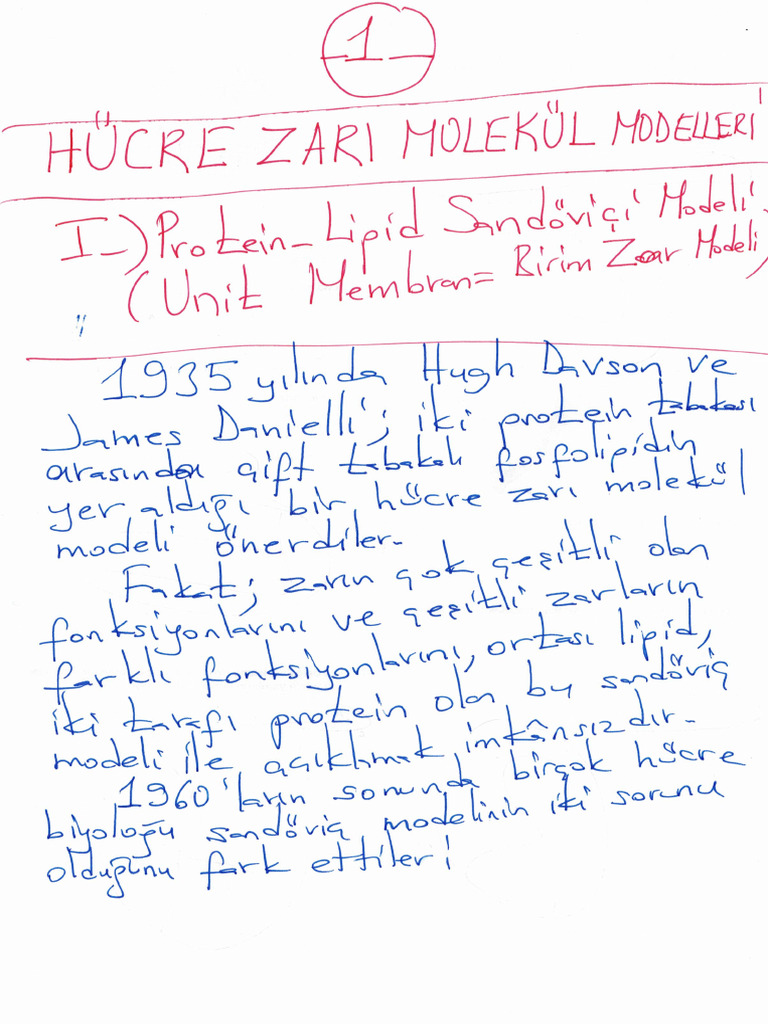 1
HÜCRE ZARI MOLEKÜL MODELLERİ
I-) Protein-Lipid Sandöviçi Modeli.
(Unit Membran= Birim Zar Modeli)
"
1935 yılında Hugh Davson ve
James Danielli; iki protein tabakası
arasında çift tabakalı fosfolipidin
yer aldığı bir hücre zarı molekül
modeli önerdiler.
Fakat; zarın çok çeşitli olan
fonksiyonlarını ve çeşitli zarların
farklı fonksiyonlarını, ortası lipid,
iki tarafı protein olan bu sandöviç
modeli ile açıklmak imkânsızdır.
1960'ların sonunda birçok hücre
biyoloğu sandöviç modelinin iki sorunu
olduğunu fark ettiler!